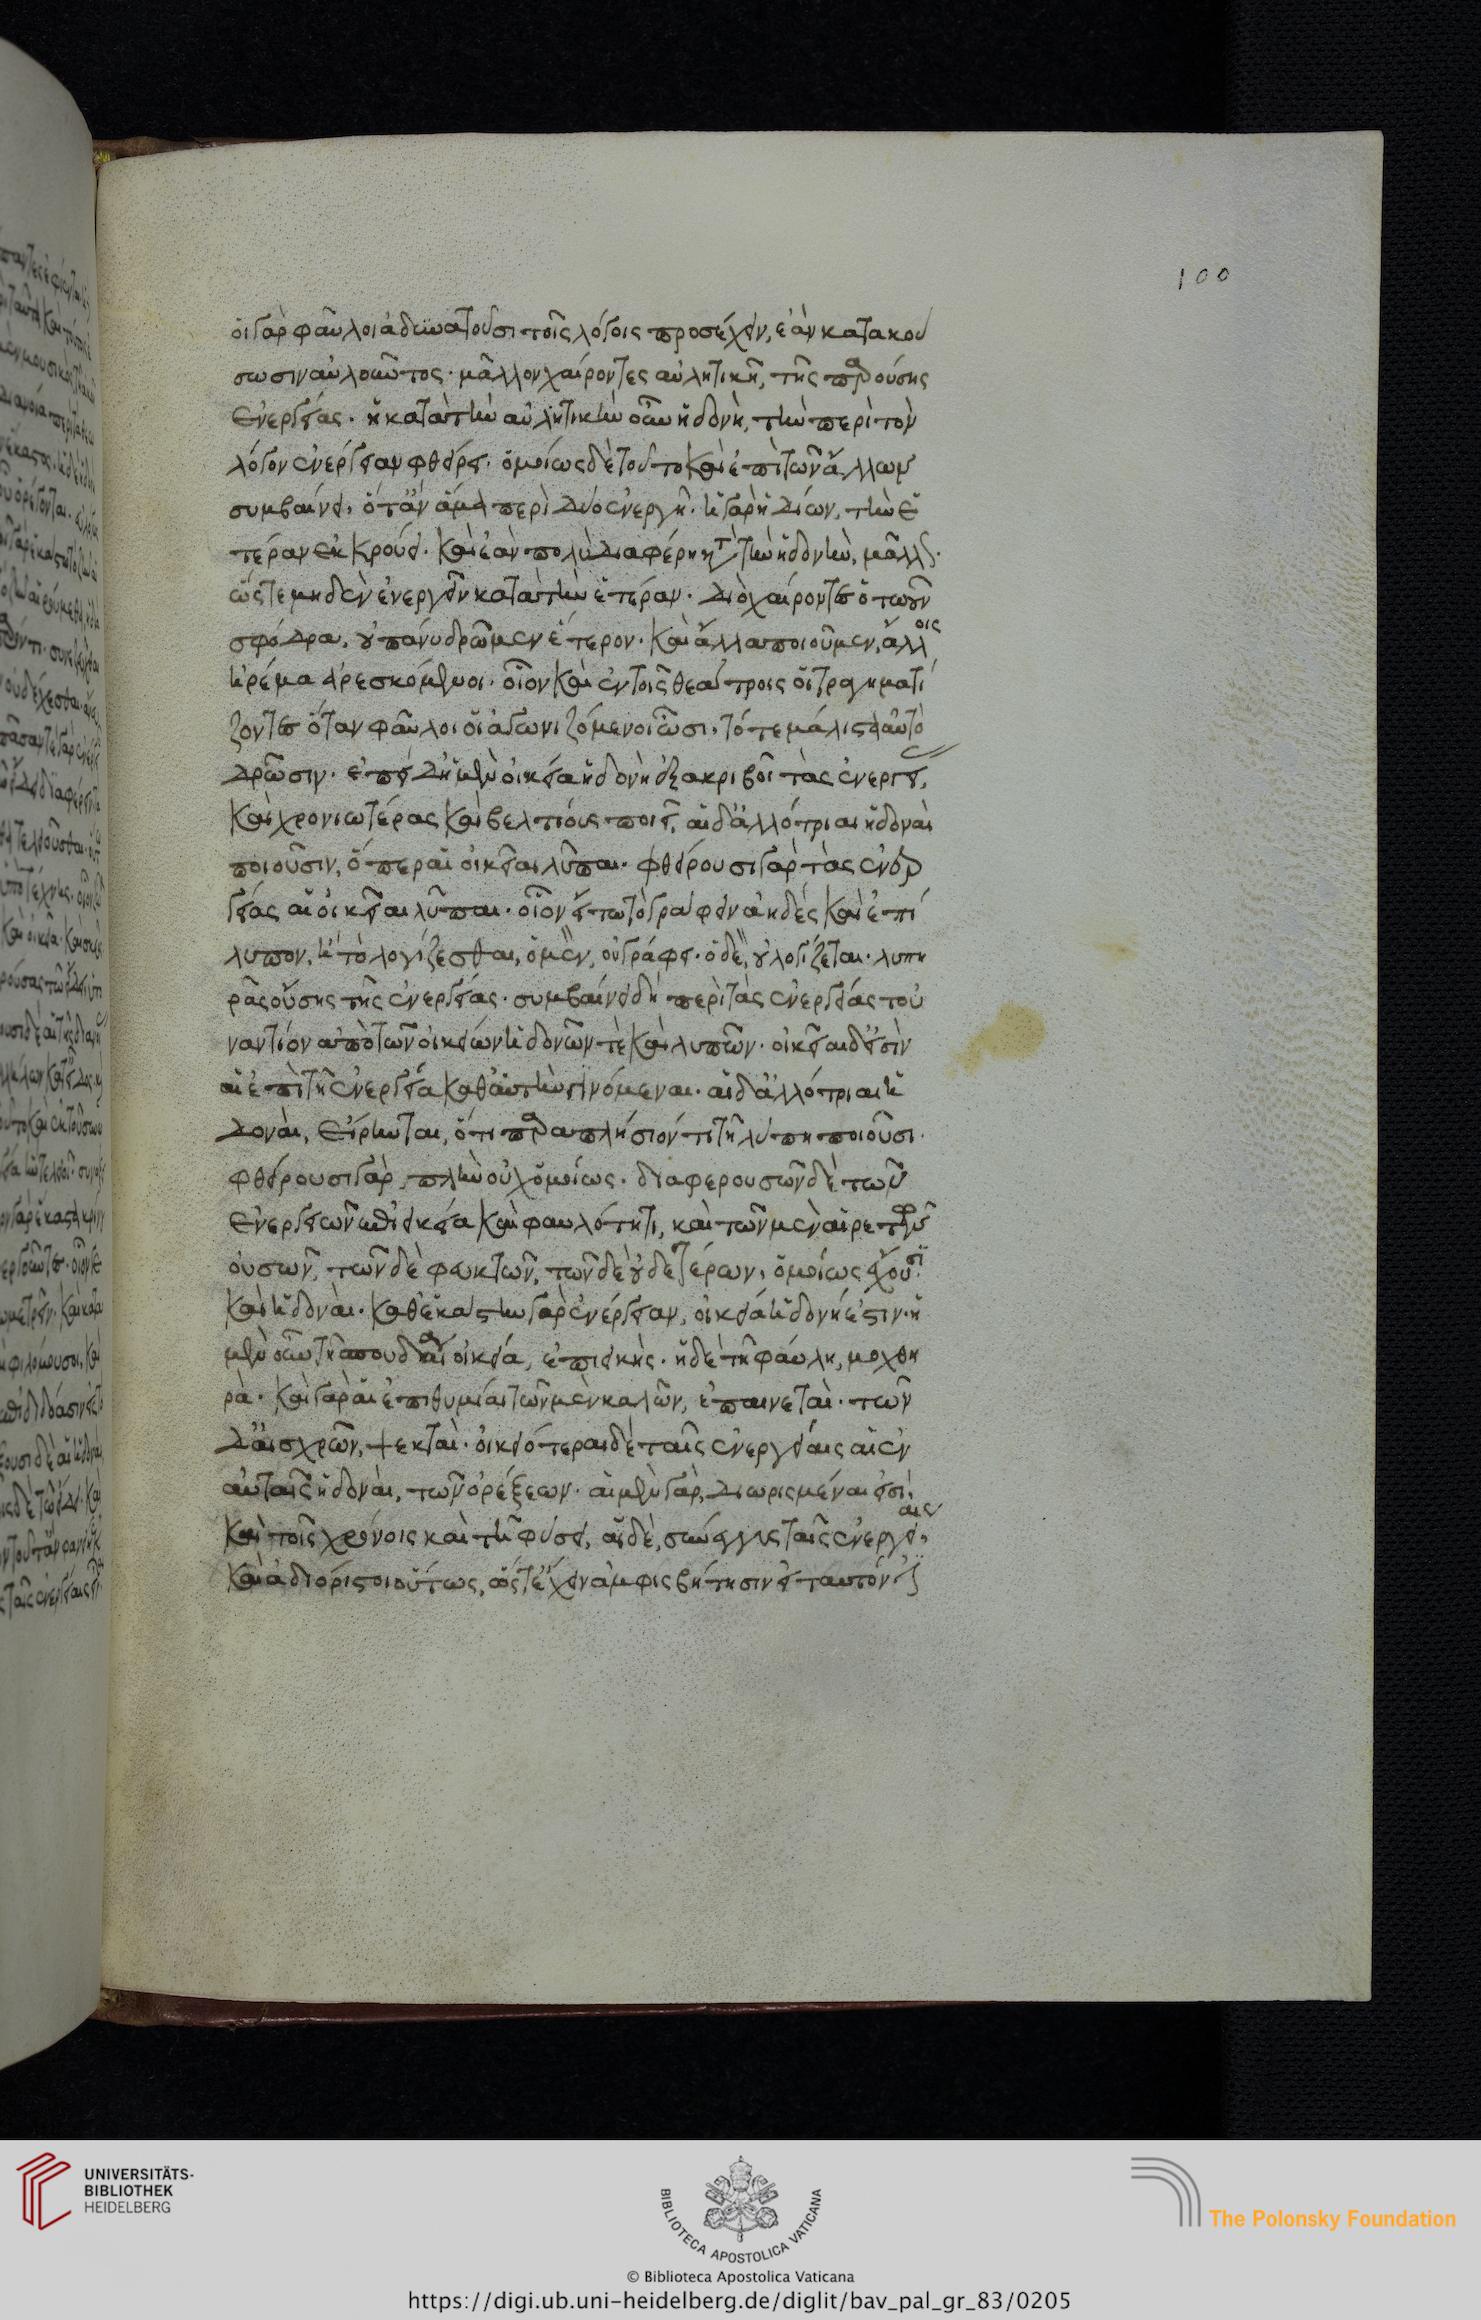 100
οἱ γὰρ φαῦλοι ἀδυνατοῦσι τοῖς λόγοις προσέχειν, ἐὰν κατακού
σωσιν αὐλοῦντος· μᾶλλον χαίροντες αὐλητικῇ, τῆς παρούσης
ἐνεργείας· ἡ κατὰ τὴν αὐλητικὴν οὖν ἡδονὴ, τὴν περὶ τὸν
λόγον ἐνέργειαν φθείρει· ὁμοίως δὲ τοῦτο καὶ ἐπὶ τῶν ἄλλων
συμβαίνει, ὅταν ἅμα περὶ δύο ἐνεργῇ· ἡ γὰρ ἡδίων, τὴν ἑ
τέραν ἐκκρούει· καὶ ἐὰν πολὺ διαφέρῃ κατὰ τὴν ἡδονὴν, μᾶλλον·
ὥςτε μηδὲν ἐνεργεῖν κατὰ τὴν ἑτέραν· διὸ χαίροντες ὁτωοῦν
σφόδρα, οὐ πάνυ δρῶμεν ἕτερον· καὶ ἄλλα ποιοῦμεν, ἄλλοις
ἠρέμα ἀρεσκόμενοι· οἷον καὶ ἐν τοῖς θεάτροις οἱ τραγηματί
ζοντες ὅταν φαῦλοι οἱ ἀγωνιζόμενοι ὦσι, τότε μάλιστα αὐτὸ
δρῶσιν· ἐπεὶ δὴ ἡ μὲν οἰκεία ἡδονὴ ἐξακριβοῖ τὰς ἐνεργεί,
καὶ χρονιωτέρας καὶ βελτίους ποιεῖ, αἱ δ' ἀλλότριαι ἡδοναὶ
ποιοῦσιν, ὅπερ αἱ οἰκεῖαι λῦπαι· φθείρουσι γὰρ τὰς ἐνερ
γείας αἱ οἰκεῖαι λῦπαι· οἷον εἴ τω τὸ γράφειν ἀηδὲς καὶ ἐπί
λυπον, ἢ τὸ λογίζεσθαι, ὁ μὲν, οὐ γράφει· ὁ δὲ, οὐ λογίζεται· λυπη
ρᾶς οὔσης τῆς ἐνεργείας· συμβαίνει δὴ περὶ τὰς ἐνεργείας τοὐ
ναντίον ἀπὸ τῶν οἰκείων ἡδονῶν τὲ καὶ λυπῶν· οἰκεῖαι δ' εἰσὶν
αἱ ἐπὶ τῇ ἐνεργεία καθ' αὑτὴν γινόμεναι· αἱ δ' ἀλλότριαι ἡ
δοναὶ, εἴρηται, ὅτι παραπλήσιόν τι τῇ λύπῃ ποιοῦσι·
φθείρουσι γὰρ, πλὴν οὐχ ὁμοίως· διαφερουσῶν δὲ τῶν
ἐνεργειῶν ἐπιεικεία καὶ φαυλότητι, καὶ τῶν μὲν αἱρετῶν
οὐσῶν, τῶν δὲ φευκτῶν, τῶν δὲ οὐδετέρων, ὁμοίως ἔχουσι
καὶ ἡδοναὶ· καθ' ἑκάστην γὰρ ἐνέργειαν, οἰκεία ἡδονή ἐστιν· ἡ
μὲν οὖν τῇ σπουδαία οἰκεία, ἐπιεικής· ἡ δὲ τῇ φαύλη, μοχθη
ρά· καὶ γὰρ αἱ ἐπιθυμίαι τῶν μὲν καλῶν, ἐπαινεταί· τῶν
δ' αἰσχρῶν, ψεκταί· οἰκειότεραι δὲ ταῖς ἐνεργείαις αἱ ἐν
αὐταῖς ἡδοναὶ, τῶν ὀρέξεων· αἱ μὲν γὰρ, διωρισμέναι εἰσὶ,
καὶ τοῖς χρόνοις καὶ τῇ φύσει, αἱ δὲ, σύνεγγυς ταῖς ἐνεργείαις,
καὶ ἀδιόριστοι οὕτως, ὥςτ' ἔχειν ἀμφισβήτησιν εἰ ταυτόν ἐστι
UNIVERSITÄTS-
BIBLIOTHEK
HEIDELBERG
BIBLIOTECA APOSTOLICA VATICANA
© Biblioteca Apostolica Vaticana
The Polonsky Foundation
https://digi.ub.uni-heidelberg.de/diglit/bav_pal_gr_83/0205